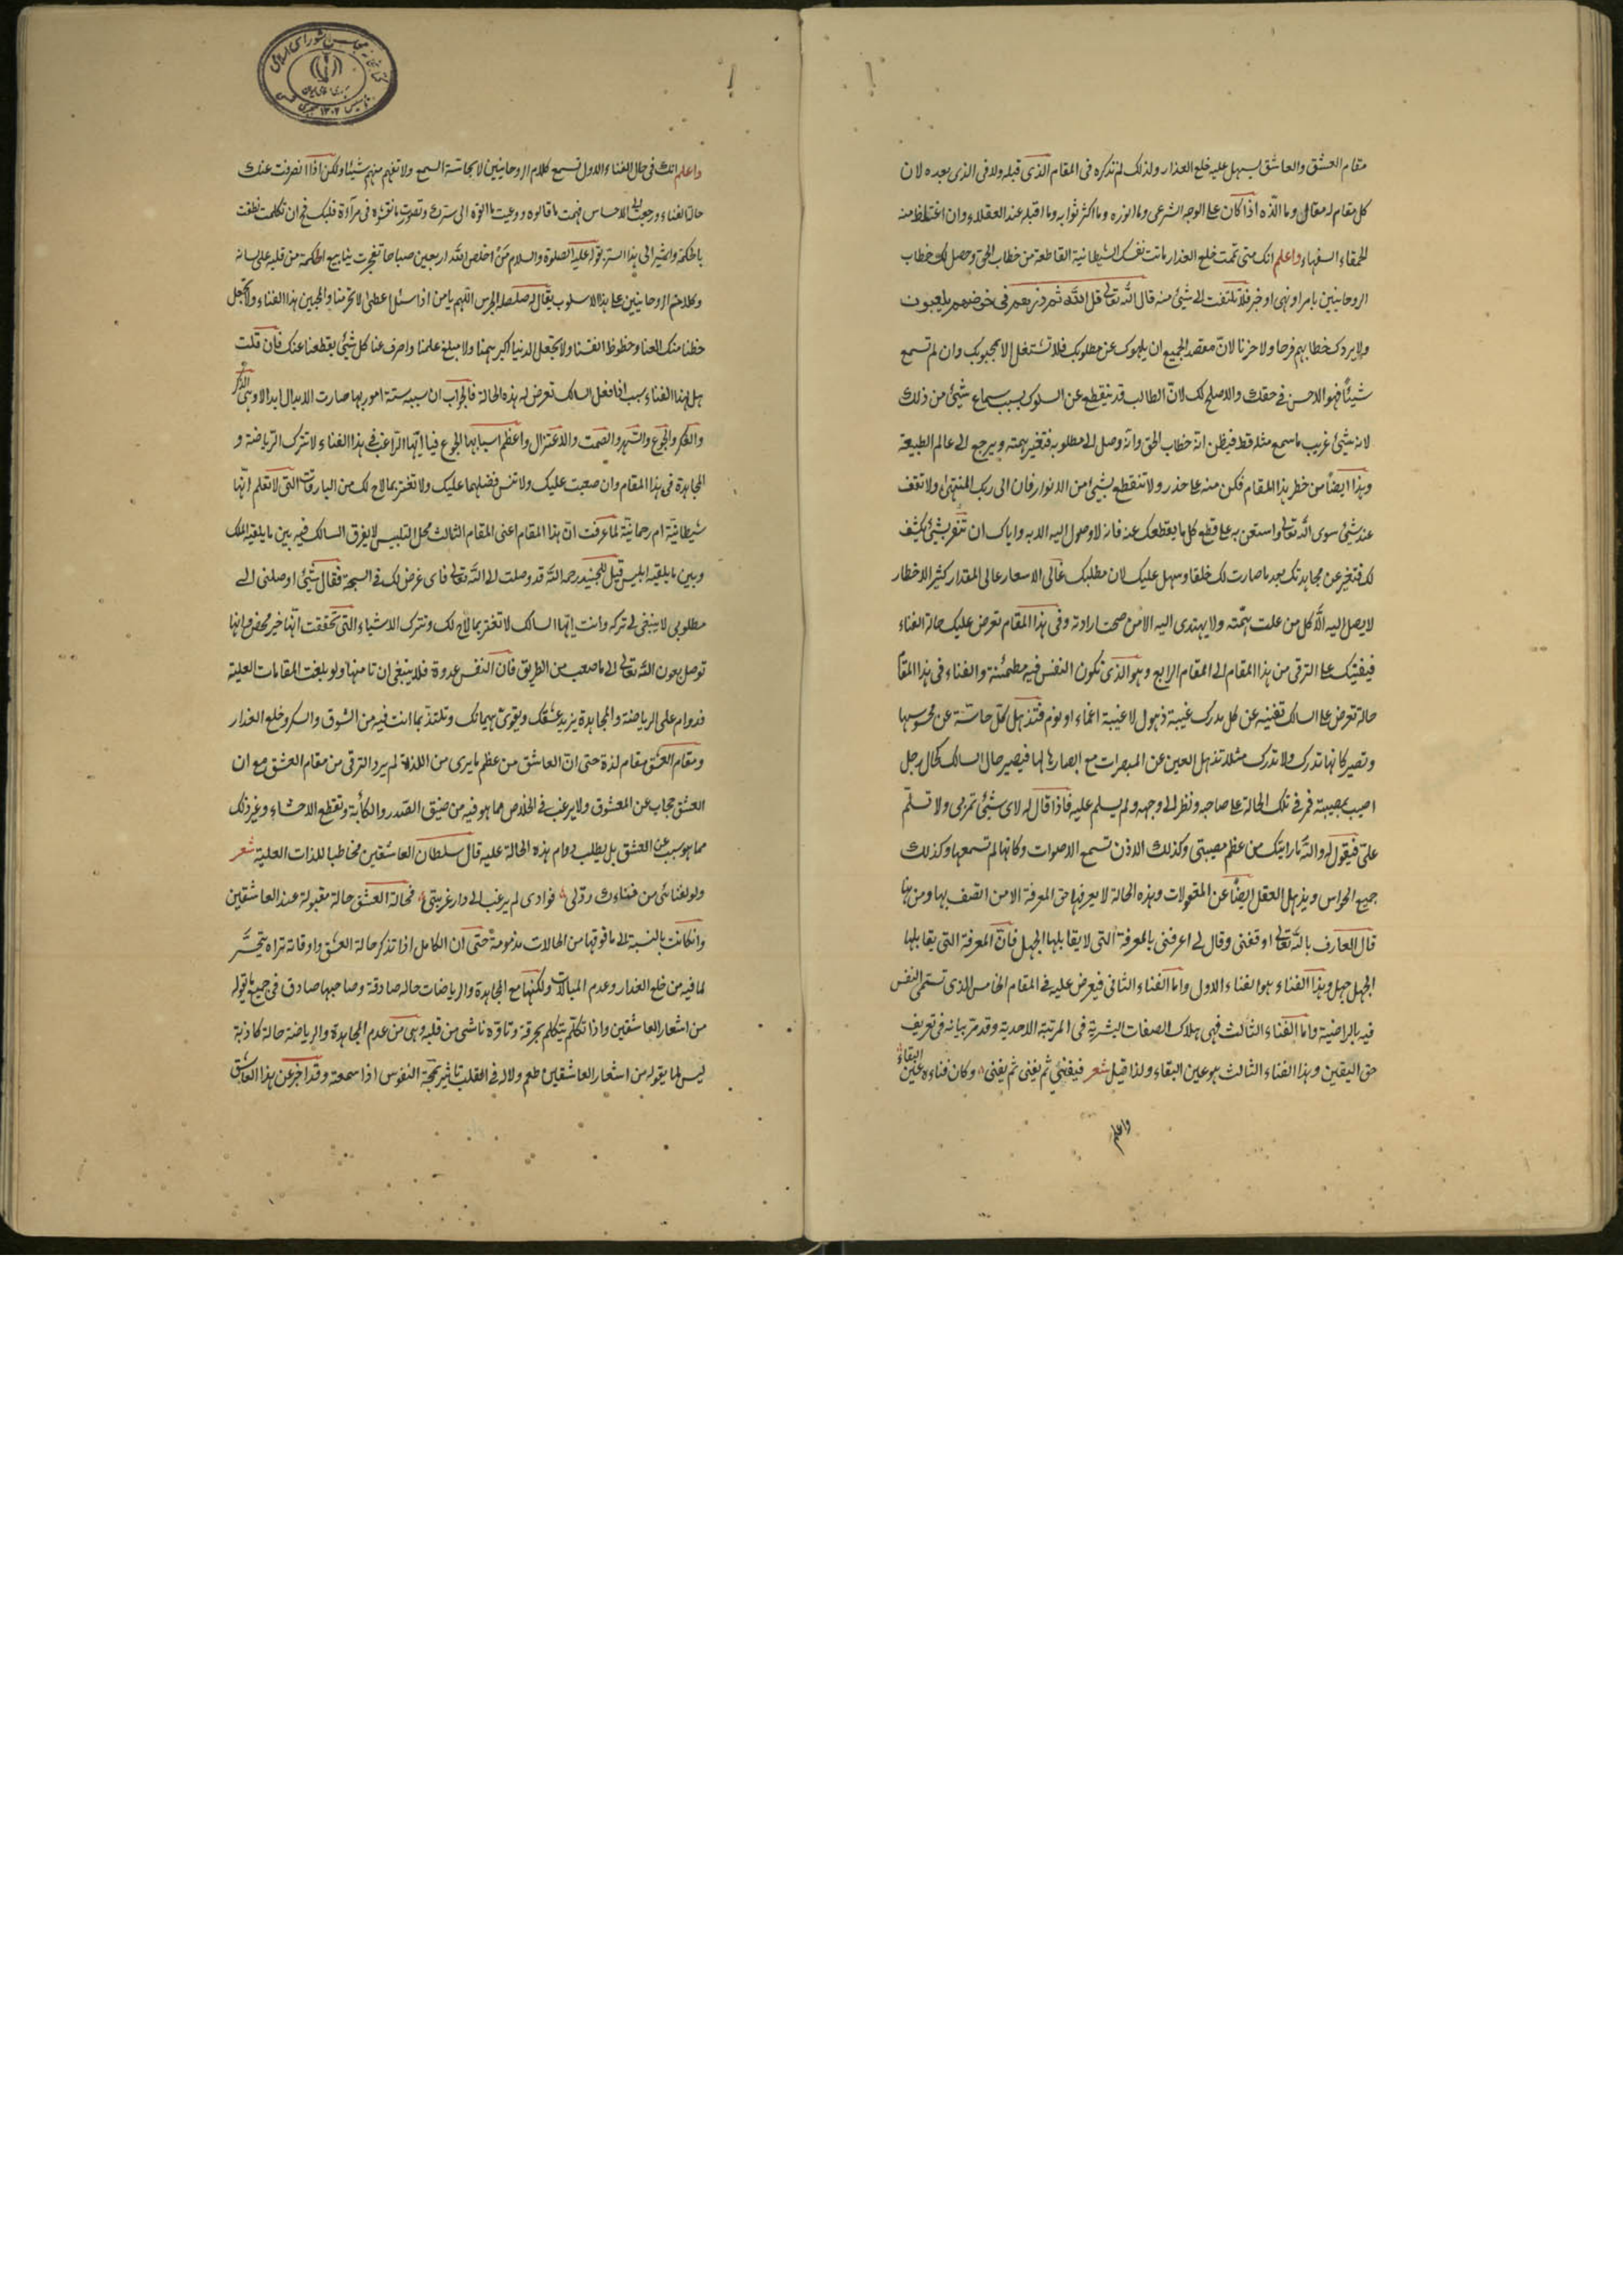 مقام العشق والعاشق يسهل عليه خلع العذار ولذلك لم تذكره في المقام الذى قبله ولا في الذى بعده لان
كل مقام له مقال وما الذّه اذا كان على الوجه الشرعى وما انوره وما اكثر ثوابه وما اقبله عند العقلاء وان اغتلظ منه
الحمقاء السفهاء واعلم انك متى تمت خلع العذار ماتت نفسك الشيطانية القاطعة من خطاب الحق وحصل لك خطاب
الروحانيين بامر او نهى او خبر فلا تلتفت الى شئ منه قال الله تعالى قل الله ثم ذرهم في خوضهم يلعبون
ولا يردك خطابهم فرحا ولا حزنا لانّ مقصد الجميع ان يلهوك عن مطلوبك فلا تشتغل الا بمحبوبك وان لم تسمع
شيئاً فهو الاحسن في حقك والاصلح لك لانّ الطالب قد ينقطع عن السلوك بسبب سماع شئ من ذلك
لانه شئ غريب ما سمع مثله قط فيظن انه خطاب الحق وانه وصل الى مطلوبه فتغير همته ويرجع الى عالم الطبيعة
وهذا ايضاً من خطر هذا المقام فكن منه على حذر ولا تنقطع بشئ من الانوار فان الى ربك المنتهى ولا تقف
عند شئ سوى الله تعالى واستعن به على قطع كل ما يقطعك عنه فانه لا وصول اليه الا به واياك ان تغتر بشئ يكشف
لك فتغير عن مجاهدتك بعد ما صارت لك خلقا وسهل عليك لان مطلبك غالى الاسعار عالى المقدار كثير الاخطار
لا يصل اليه الا كل من علت همّته ولا يهتدى اليه الا من صحت ارادته وفي هذا المقام تعرض عليك حالة الفناء
فيفتيك على الترقى من هذا المقام الى المقام الرابع وهو الذى تكون النفس فيه مطمئنة والفناء في هذا المقام
حالة تعرض على السالك تغيبه عن كل مدرك غيبة ذهول لا غيبة اغماء او نوم فتذهل كل حاسّة عن محسوسها
وتصير كانها تدرك ولا تدرك مثلا تذهل العين عن المبصرات مع ابصارها لها فيصير حال السالك كحال رجل
اصيب بمصيبة فمر في تلك الحالة على صاحبه ونظر الى وجهه ولم يسلم عليه فاذا قال له لاى شئ تمر بى ولا تسلّم
علىّ فيقول له والله ما رايتك من عظم مصيبتى وكذلك الاذن تسمع الاصوات وكانها لم تسمعها وكذلك
جميع الحواس ويذهل العقل ايضاً عن المعقولات وهذه الحالة لا يعرفها حق المعرفة الا من اتصف بها ومن هنا
قال العارف بالله تعالى اوقفنى وقال لى اعرفنى بالمعرفة التى لا يقابلها الجهل فانّ المعرفة التى يقابلها
الجهل جهل وهذا الفناء هو الفناء الاول واما الفناء الثانى فيعرض عليه في المقام الخامس الذى تسمّى النفس
فيه بالراضية واما الفناء الثالث فهى هلاك الصفات البشرية في المرتبة الاحدية وقد مرّ بيانه في تعريف
حق اليقين وهذا الفناء الثالث هو عين البقاء ولذا قيل شعر فيفنى ثم يفنى ثم يفنى وكان فناءه عين البقاء
واعلم
واعلم انك في حال الفناء الاول تسمع كلام الروحانيين لا بحاسّة السمع ولا تفهم منهم شيئا ولكن اذا انصرفت عنك
حالة الفناء ورجعت الى الاحساس فهمت ما قالوه ووعيت ما القوه الى سرّك وتصورت ما نقشوه في مرآة قلبك فح ان تكلمت نطقت
بالحكمة وا شير الى هذا السرّ بقوله عليه الصلوة والسلام من اخلص لله اربعين صباحا تفجرت ينابيع الحكمة من قلبه على لسانه
وكلام الروحانيين على هذا الاسلوب يقال له صلصلة الجرس اللهم يا من اذا سئل اعطى لا تحرمنا والمحبين هذا الفناء ولا تجعل
حظنا منك العنا وحظوظ انفسنا ولا تجعل الدنيا اكبر همنا ولا مبلغ علمنا واصرف عنا كل شئ يقطعنا عنك فان قلت
هل لهذا الفناء سبب اذا فعل السالك تعرض له هذه الحالة فالجواب ان سببه ستة امور بها صارت الابدال ابدالا وهى الذكر
والفكر والجوع والسهر والصمت والاعتزال واعظم اسبابها الجوع فيا ايّها الراغب في هذا الفناء لا تترك الرياضة و
المجاهدة في هذا المقام وان صعبت عليك ولا تنس فضلهما عليك ولا تغتر بما لاح لك من البارقات التى لا تعلم انّها
شيطانيّة ام رحمانيّة لما عرفت انّ هذا المقام اعنى المقام الثالث محل التلبيس لا يفرق السالك فيه بين ما يلقيه الملك
وبين ما يلقيه ابليس قيل للجنيد رحمه الله قد وصلت الى الله تعالى فاى غرض لك في السبحة فقال شئ اوصلنى الى
مطلوبى لا ينبغى لى تركه وانت ايّها السالك لا تغتر بما لاح لك وتترك الاشياء التى تحققت انّها خير محض وانها
توصل بعون الله تعالى الى ما صعب من الطريق فان النفس عدوة فلا ينبغى ان تامنها ولو بلغت المقامات العلية
فدوام على الرياضة والمجاهدة يزيد عشقك ويقوى هيمانك وتلتذّ بما انت فيه من الشوق والسكر وخلع العذار
ومقام العشق مقام لذة حتى انّ العاشق من عظم ما يرى من اللذة لم يرد الترقى من مقام العشق مع ان
العشق حجاب عن المعشوق ولا يرغب في الخلاص مما هو فيه من ضيق الصدر والكآبة وتقطع الاحشاء وغير ذلك
مما هو سبب عن العشق بل يطلب دوام هذه الحالة عليه قال سلطان العاشقين مخاطبا للذات العلية شعر
ولو لفنائى من فناءك ردّ لى فوادى لم يرغب الى دار غربتى فحالة العشق حالة مقبولة عند العاشقين
وانكانت بالنسبة الى ما فوقها من الحالات مذمومة حتى ان الكامل اذا تذكر حالة العشق واوقاته تراه يتحسّر
لما فيه من خلع العذار وعدم المبالات ولكنها مع المجاهدة والرياضات حاله صادقة وصاحبها صادق في جميع ما يقوله
من اشعار العاشقين واذا تكلم يتكلم بحرقة وتاوّه ناشى من قلبه وهى من عدم المجاهدة والرياضة حالة كاذبة
ليس لما يقوله من اشعار العاشقين طعم ولا له في القلب تاثير تمجّه النفوس اذا سمعته وقد اخبر عن هذا العاشق